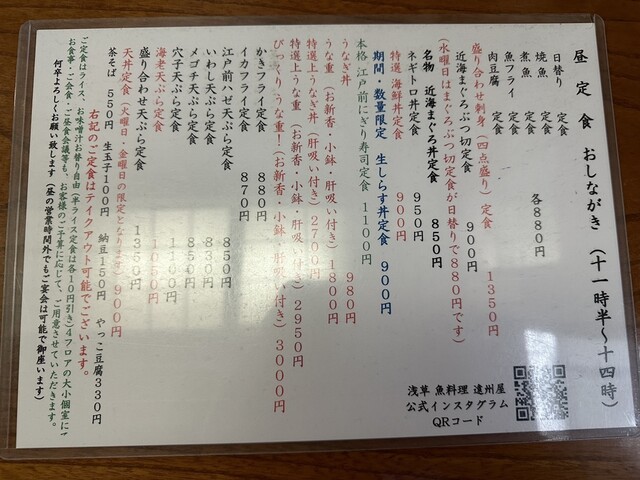 昼定食 おしながき (十一時半〜十四時)
日替り 定食
焼魚 定食
煮魚 定食
魚フライ 定食
肉豆腐 定食
各880円
盛り合わせ刺身(四点盛り)定食 1350円
近海まぐろぶつ切定食 900円
(水曜日はまぐろぶつ切定食が日替りで880円です)
名物 近海まぐろ丼定食 850円
ネギトロ丼定食 950円
特選 海鮮丼定食 900円
期間・数量限定 生しらす丼定食 900円
本格 江戸前にぎり寿司定食 1100円
うなぎ丼 980円
うな重(お新香・小鉢・肝吸い付き)1800円
特選上うなぎ丼(肝吸い付き)2700円
特選上うな重(お新香・小鉢・肝吸い付き)2950円
びっくりうな重!(お新香・小鉢・肝吸い付き)3000円
かきフライ定食 880円
イカフライ定食 870円
江戸前ハゼ天ぷら定食 850円
いわし天ぷら定食 830円
メゴチ天ぷら定食 850円
穴子天ぷら定食 1100円
海老天ぷら定食 1050円
盛り合わせ天ぷら定食 1350円
天丼定食(火曜日・金曜日の限定となります)900円
茶そば 550円 生玉子100円 納豆150円 やっこ豆腐330円
右記のご定食はテイクアウト可能でございます。
ご定食はライス、お味噌汁お替り自由(半ライス定食は各10円引き)4フロアの大小個室にて
お食事・ご会食・ご昼食会議等も、お客様のご予算に応じて、ご用意させていただきます。
何卒よろしくお願い致します(昼の営業時間外でもご宴会は可能で御座います)
浅草 魚料理 遠州屋
公式インスタグラム
QRコード